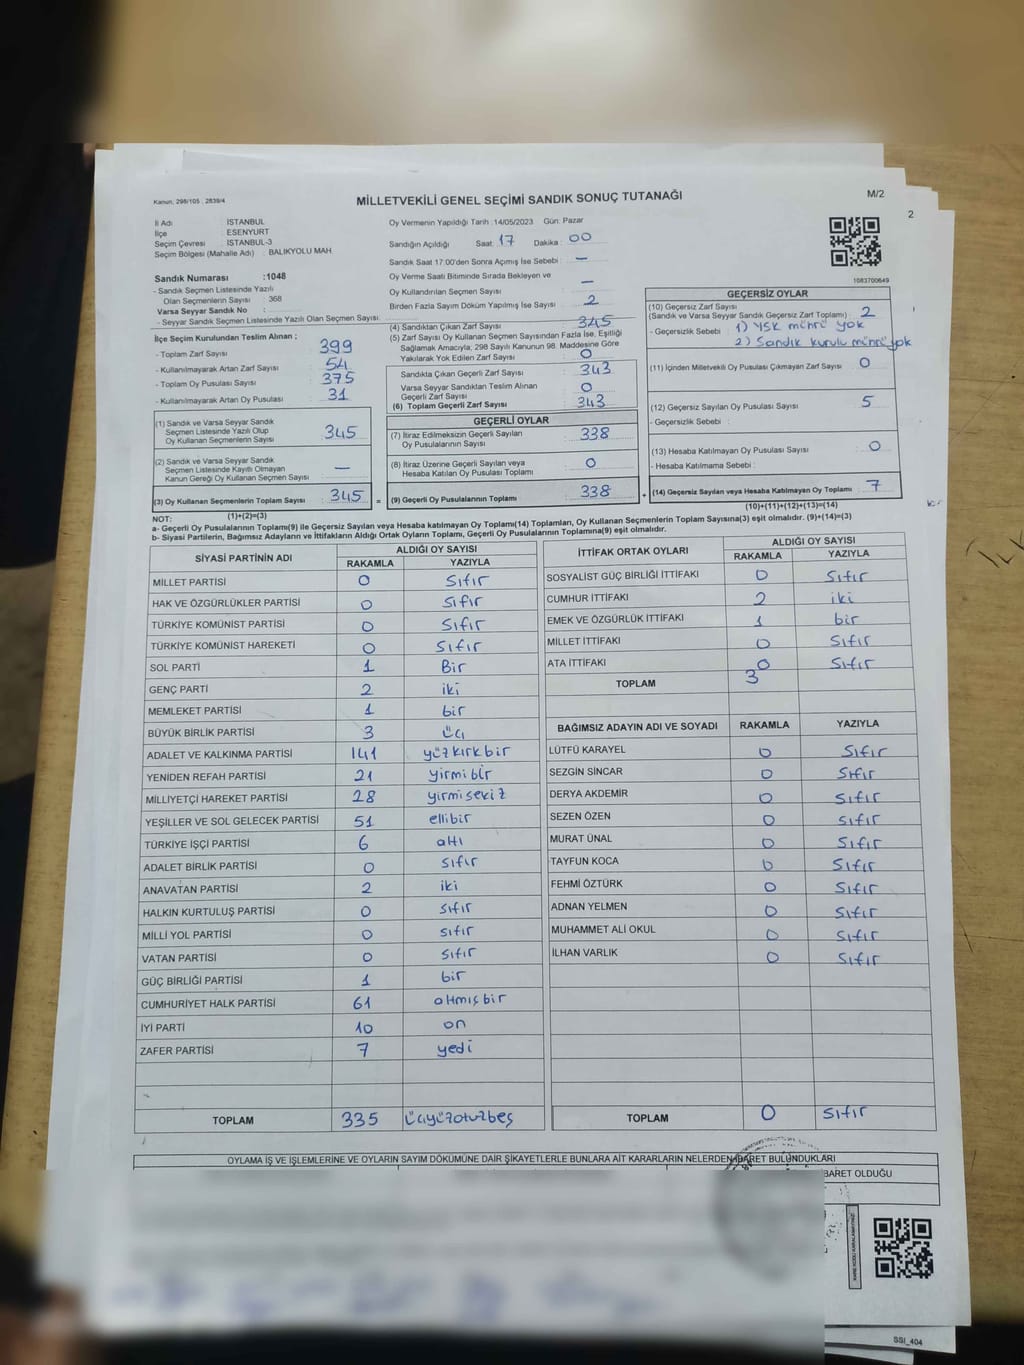 Kanun, 298/105 , 2839/4
MİLLETVEKİLİ GENEL SEÇİMİ SANDIK SONUÇ TUTANAĞI
M/2
2
İl Adı İSTANBUL
İlçe ESENYURT
Seçim Çevresi İSTANBUL-3
Seçim Bölgesi (Mahalle Adı) : BALIKYOLU MAH.
Sandık Numarası :1048
- Sandık Seçmen Listesinde Yazılı
Olan Seçmenlerin Sayısı : 368
Varsa Seyyar Sandık No :
- Seyyar Sandık Seçmen Listesinde Yazılı Olan Seçmen Sayısı:
İlçe Seçim Kurulundan Teslim Alınan ;
- Toplam Zarf Sayısı 399
- Kullanılmayarak Artan Zarf Sayısı 54
- Toplam Oy Pusulası Sayısı 375
- Kullanılmayarak Artan Oy Pusulası 31
(1) Sandık ve Varsa Seyyar Sandık
Seçmen Listesinde Yazılı Olup
Oy Kullanan Seçmenlerin Sayısı 345
(2) Sandık ve Varsa Seyyar Sandık
Seçmen Listesinde Kayıtlı Olmayan
Kanun Gereği Oy Kullanan Seçmen Sayısı —
(3) Oy Kullanan Seçmenlerin Toplam Sayısı 345 =
(1)+(2)=(3)
Oy Vermenin Yapıldığı Tarih : 14/05/2023 Gün: Pazar
Sandığın Açıldığı Saat: 17 Dakika : 00
Sandık Saat 17:00'den Sonra Açılmış İse Sebebi : —
Oy Verme Saati Bitiminde Sırada Bekleyen ve
Oy Kullandırılan Seçmen Sayısı : —
Birden Fazla Sayım Döküm Yapılmış İse Sayısı : 2
(4) Sandıktan Çıkan Zarf Sayısı 345
(5) Zarf Sayısı Oy Kullanan Seçmen Sayısından Fazla İse, Eşitliği
Sağlamak Amacıyla, 298 Sayılı Kanunun 98. Maddesine Göre
Yakılarak Yok Edilen Zarf Sayısı : 0
Sandıkta Çıkan Geçerli Zarf Sayısı : 343
Varsa Seyyar Sandıktan Teslim Alınan
Geçerli Zarf Sayısı : 0
(6) Toplam Geçerli Zarf Sayısı : 343
GEÇERLİ OYLAR
(7) İtiraz Edilmeksizin Geçerli Sayılan
Oy Pusulalarının Sayısı : 338
(8) İtiraz Üzerine Geçerli Sayılan veya
Hesaba Katılan Oy Pusulası Toplamı : 0
(9) Geçerli Oy Pusulalarının Toplamı : 338 +
1083700649
GEÇERSİZ OYLAR
(10) Geçersiz Zarf Sayısı
(Sandık ve Varsa Seyyar Sandık Geçersiz Zarf Toplamı) : 2
- Geçersizlik Sebebi : 1) YSK mührü yok
2) Sandık kurulu mührü yok
(11) İçinden Milletvekili Oy Pusulası Çıkmayan Zarf Sayısı : 0
(12) Geçersiz Sayılan Oy Pusulası Sayısı : 5
- Geçersizlik Sebebi :
(13) Hesaba Katılmayan Oy Pusulası Sayısı : 0
- Hesaba Katılmama Sebebi :
(14) Geçersiz Sayılan veya Hesaba Katılmayan Oy Toplamı : 7
(10)+(11)+(12)+(13)=(14)
NOT:
a- Geçerli Oy Pusulalarının Toplamı(9) ile Geçersiz Sayılan veya Hesaba katılmayan Oy Toplamı(14) Toplamları, Oy Kullanan Seçmenlerin Toplam Sayısına(3) eşit olmalıdır. (9)+(14)=(3)
b- Siyasi Partilerin, Bağımsız Adayların ve İttifakların Aldığı Ortak Oyların Toplamı, Geçerli Oy Pusulalarının Toplamına(9) eşit olmalıdır.
SİYASİ PARTİNİN ADI ALDIĞI OY SAYISI
RAKAMLA YAZIYLA
MİLLET PARTİSİ 0 sıfır
HAK VE ÖZGÜRLÜKLER PARTİSİ 0 sıfır
TÜRKİYE KOMÜNİST PARTİSİ 0 sıfır
TÜRKİYE KOMÜNİST HAREKETİ 0 sıfır
SOL PARTİ 1 Bir
GENÇ PARTİ 2 iki
MEMLEKET PARTİSİ 1 bir
BÜYÜK BİRLİK PARTİSİ 3 üç
ADALET VE KALKINMA PARTİSİ 141 yüzkırkbir
YENİDEN REFAH PARTİSİ 21 yirmibir
MİLLİYETÇİ HAREKET PARTİSİ 28 yirmisekiz
YEŞİLLER VE SOL GELECEK PARTİSİ 51 ellibir
TÜRKİYE İŞÇİ PARTİSİ 6 altı
ADALET BİRLİK PARTİSİ 0 sıfır
ANAVATAN PARTİSİ 2 iki
HALKIN KURTULUŞ PARTİSİ 0 sıfır
MİLLİ YOL PARTİSİ 0 sıfır
VATAN PARTİSİ 0 sıfır
GÜÇ BİRLİĞİ PARTİSİ 1 bir
CUMHURİYET HALK PARTİSİ 61 altmışbir
İYİ PARTİ 10 on
ZAFER PARTİSİ 7 yedi
TOPLAM 335 üçyüzotuzbeş
İTTİFAK ORTAK OYLARI ALDIĞI OY SAYISI
RAKAMLA YAZIYLA
SOSYALİST GÜÇ BİRLİĞİ İTTİFAKI 0 sıfır
CUMHUR İTTİFAKI 2 iki
EMEK VE ÖZGÜRLÜK İTTİFAKI 1 bir
MİLLET İTTİFAKI 0 sıfır
ATA İTTİFAKI 0 sıfır
TOPLAM 3
BAĞIMSIZ ADAYIN ADI VE SOYADI RAKAMLA YAZIYLA
LÜTFÜ KARAYEL 0 sıfır
SEZGİN SİNCAR 0 sıfır
DERYA AKDEMİR 0 sıfır
SEZEN ÖZEN 0 sıfır
MURAT ÜNAL 0 sıfır
TAYFUN KOCA 0 sıfır
FEHMİ ÖZTÜRK 0 sıfır
ADNAN YELMEN 0 sıfır
MUHAMMET ALİ OKUL 0 sıfır
İLHAN VARLIK 0 sıfır
TOPLAM 0 sıfır
OYLAMA İŞ VE İŞLEMLERİNE VE OYLARIN SAYIM DÖKÜMÜNE DAİR ŞİKAYETLERLE BUNLARA AİT KARARLARIN NELERDEN İBARET BULUNDUKLARI
BARET OLDUĞU
SSI_404